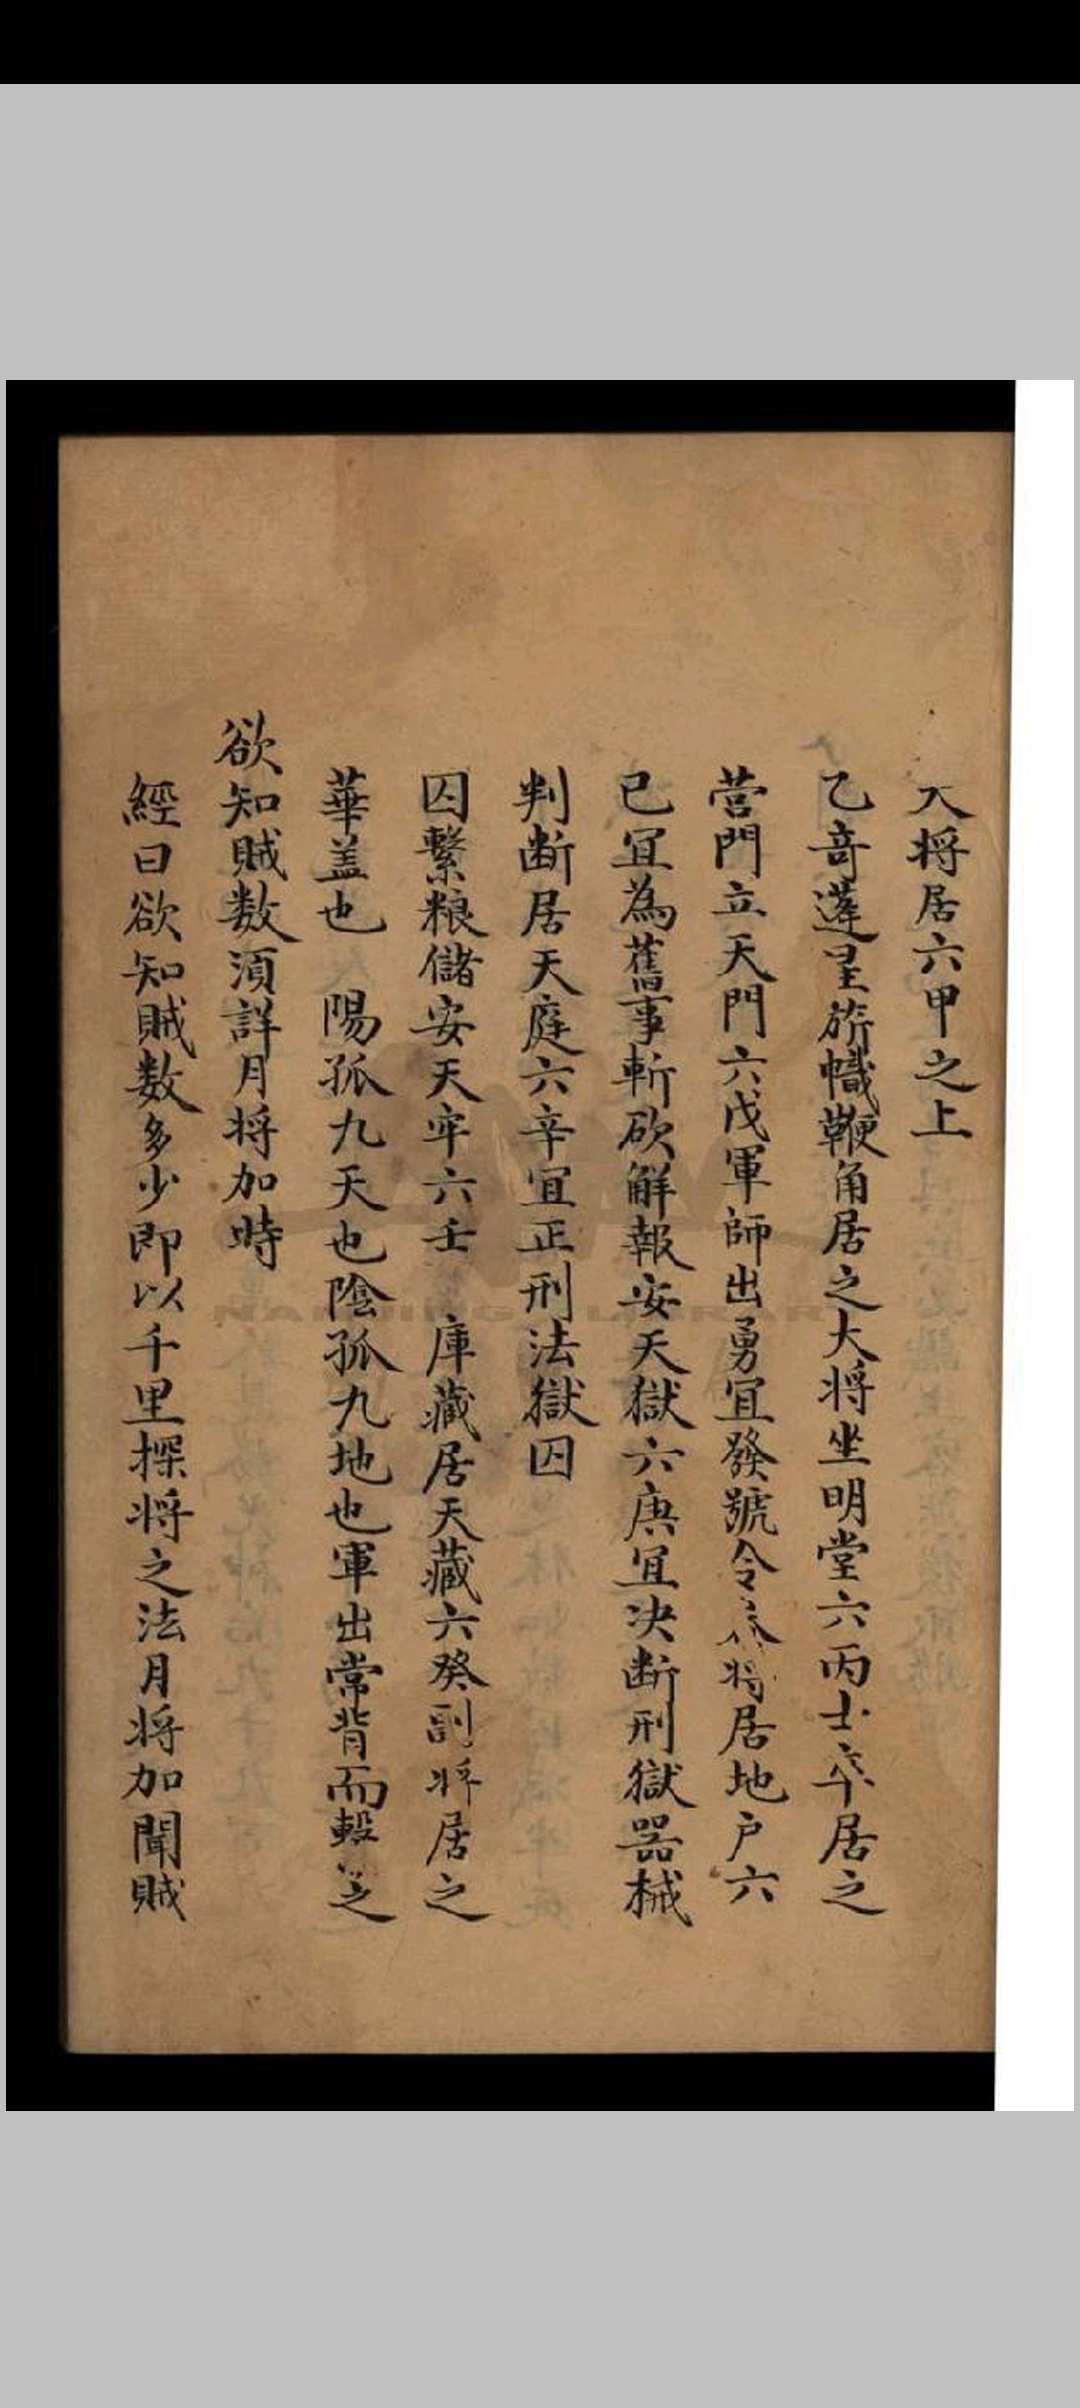 大将居六甲之上
乙奇蓬星旂幟鞭角居之大将坐明堂六丙士卒居之
营門立天門六戊軍師出勇宜發號令 将居地户六
已宜為舊事斬砍觧報安天獄六庚宜决断刑獄器械
判断居天庭六辛宜正刑法獄囚
囚繫粮儲安天牢六壬 庫藏居天藏六癸副将居之
華盖也 陽孤九天也陰孤九地也軍出常背而 之
欲知賊数湏詳月将加時
經曰欲知賊数多少即以千里探将之法月将加聞賊
NANJING LIBRARY